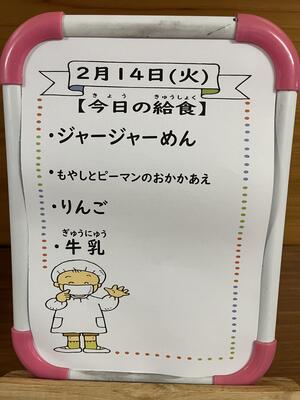 2月14日(火)
きょう きゅうしょく
【今日の給食】
・ジャージャーめん
・もやしとピーマンのおかかあえ
・りんご
ぎゅうにゅう
・牛乳